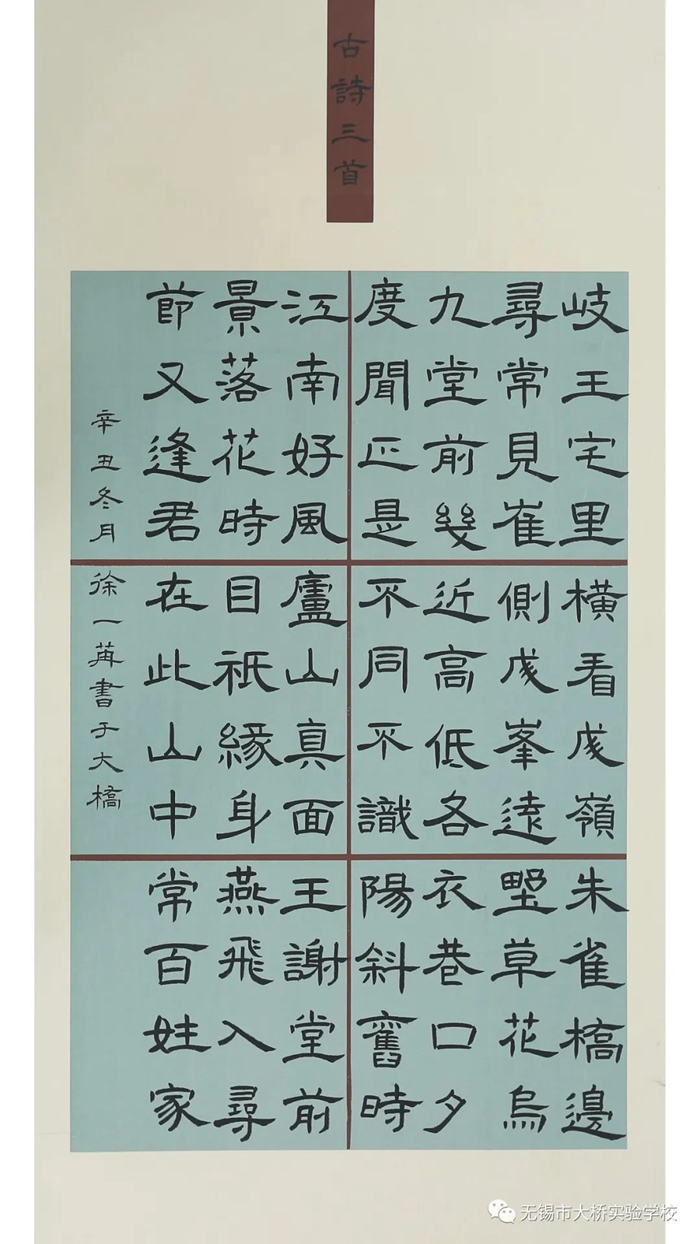 古詩三首
岐王宅里
尋常見崔
九堂前幾
度聞正是
江南好風
景落花時
節又逢君
橫看成嶺
側成峯遠
近高低各
不同不識
廬山真面
目祇緣身
在此山中
朱雀橋邊
野草花烏
衣巷口夕
陽斜舊時
王謝堂前
燕飛入尋
常百姓家
辛丑冬月 徐一苒書于大橋
无锡市大桥实验学校